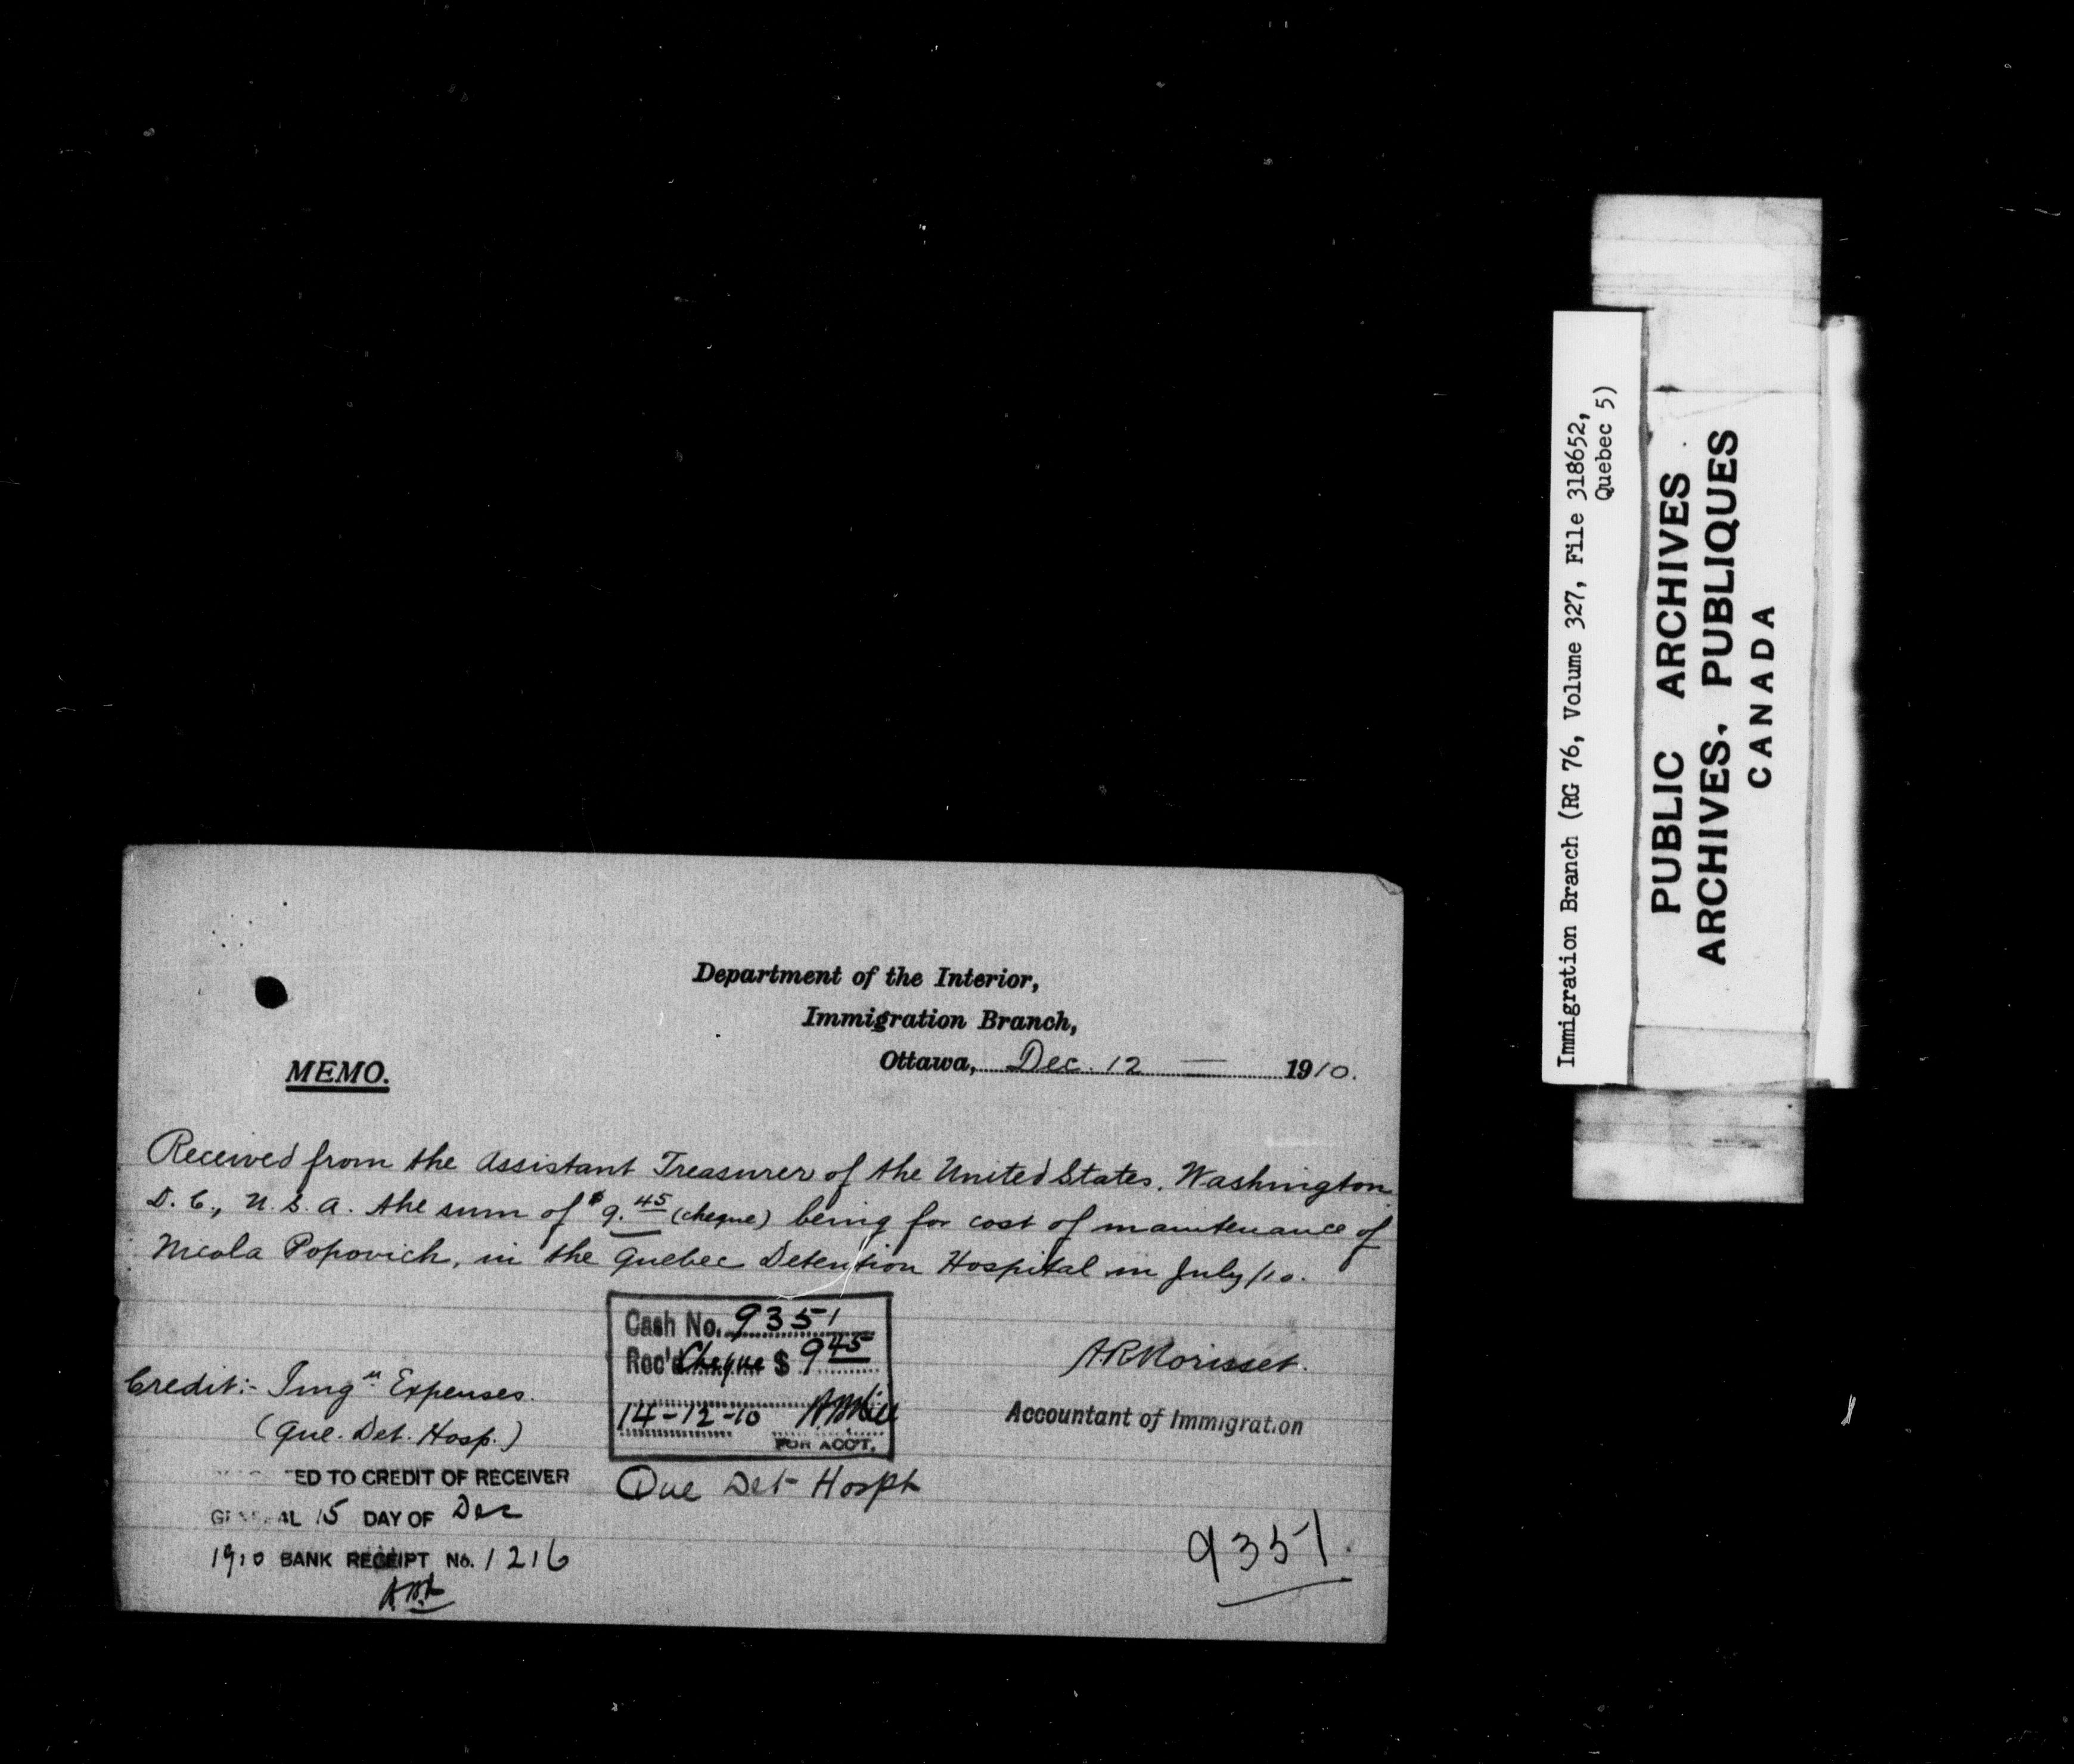 Department of the Interior,
Immigration Branch,
Ottawa, Dec. 12 — 1910.
MEMO.
Received from the Assistant Treasurer of the United States, Washington
D.C., U.S.A. the sum of $9.45 (cheque) being for cost of maintenance of
Nicola Popovich, in the Quebec Detention Hospital in July/10.
Cash No. 9351
Rec'd Cheque $ 9 45
14-12-10
FOR ACCT.
A.R. Morisset.
Accountant of Immigration
Credit:- Img n Expenses.
(Que. Det. Hosp.)
ED TO CREDIT OF RECEIVER
GENERAL 15 DAY OF Dec
1910 BANK RECEIPT No. 1216
Que Det Hospt
9351
Immigration Branch (RG 76, Volume 327, File 318652,
Quebec 5)
PUBLIC ARCHIVES
ARCHIVES. PUBLIQUES
CANADA